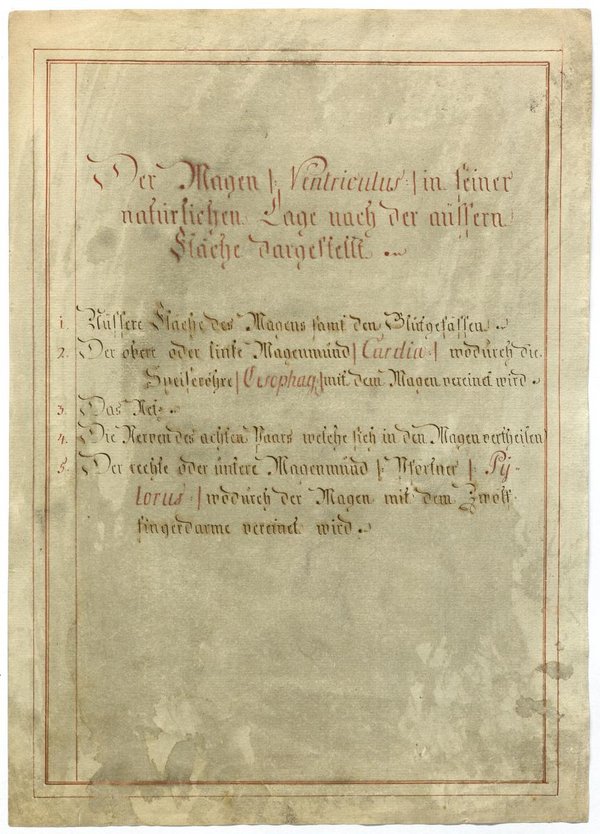 Der Magen |: Ventriculus :| in seiner
natürlichen Lage nach der äüssern
Fläche dargestellt.
1. Äüssere Fläche des Magens samt den Blütgefässen.
2. Der obere oder linke Magenmünd |: Cardia :| wodürch die
Speiseröhre |: Oesophag: :| mit dem Magen vereinet wird.
3. Das Netz.
4. Die Nerven des achten Paars welche sich in den Magen vertheilen
5. Der rechte oder üntere Magenmünd |: Pförtner |: Py-
lorus :| wodürch der Magen mit dem Zwölf-
fingerdarme vereinet wird.